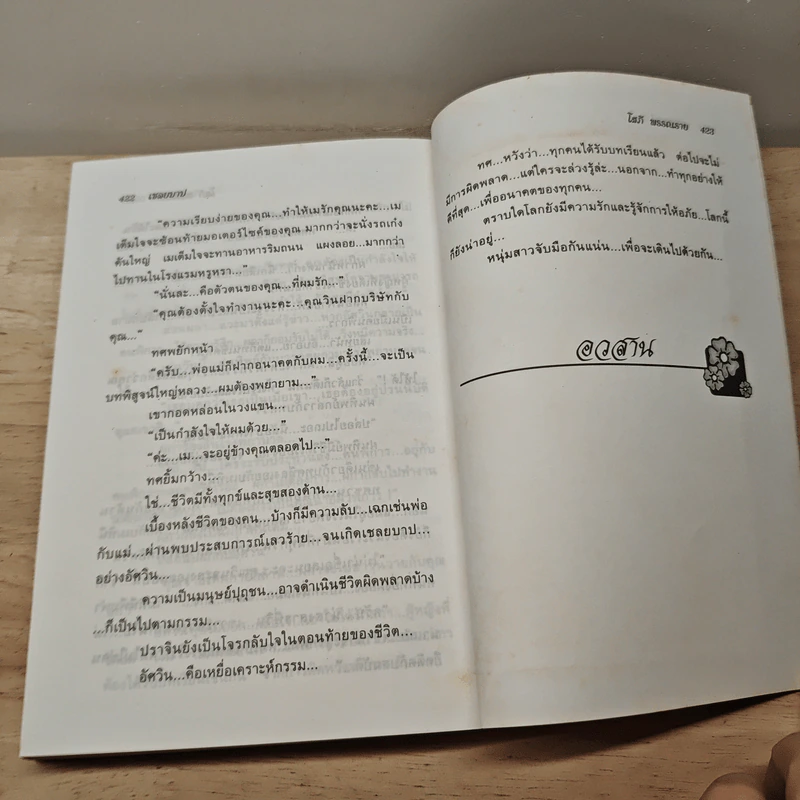 422 เชลยบาป
“ความเรียบง่ายของคุณ...ทำให้เมรักคุณนะคะ...เม
เต็มใจจะซ้อนท้ายมอเตอร์ไซค์ของคุณ มากกว่าจะนั่งรถเก๋ง
คันใหญ่ เมเต็มใจจะทานอาหารริมถนน แผงลอย...มากกว่า
ไปทานในโรงแรมหรูหรา...”
“นั่นละ...คือตัวตนของคุณ...ที่ผมรัก...”
“คุณต้องตั้งใจทำงานนะคะ...คุณวินฝากบริษัทกับ
คุณ...”
ทศพยักหน้า
“ครับ...พ่อแม่ก็ฝากอนาคตกับผม...ครั้งนี้...จะเป็น
บทพิสูจน์ใหญ่หลวง...ผมต้องพยายาม...”
เขากอดหล่อนในวงแขน...
“เป็นกำลังใจให้ผมด้วย...”
“ค่ะ...เม...จะอยู่ข้างคุณตลอดไป...”
ทศยิ้มกว้าง...
ใช่...ชีวิตมีทั้งทุกข์และสุขสองด้าน...
เบื้องหลังชีวิตของคน...บ้างก็มีความลับ...เฉกเช่นพ่อ
กับแม่...ผ่านพบประสบการณ์เลวร้าย...จนเกิดเชลยบาป...
อย่างอัศวิน...
ความเป็นมนุษย์ปุถุชน...อาจดำเนินชีวิตผิดพลาดบ้าง
...ก็เป็นไปตามกรรม...
ปราจินยังเป็นโจรกลับใจในตอนท้ายของชีวิต...
อัศวิน...คือเหยื่อเคราะห์กรรม...
โสภี พรรณราย 423
ทศ...หวังว่า...ทุกคนได้รับบทเรียนแล้ว ต่อไปจะไม่
มีการผิดพลาด...แต่ใครจะล่วงรู้ล่ะ...นอกจาก...ทำทุกอย่างให้
ดีที่สุด...เพื่ออนาคตของทุกคน...
ตราบใดโลกยังมีความรักและรู้จักการให้อภัย...โลกนี้
ก็ยังน่าอยู่...
หนุ่มสาวจับมือกันแน่น...เพื่อจะเดินไปด้วยกัน...
อวสาน